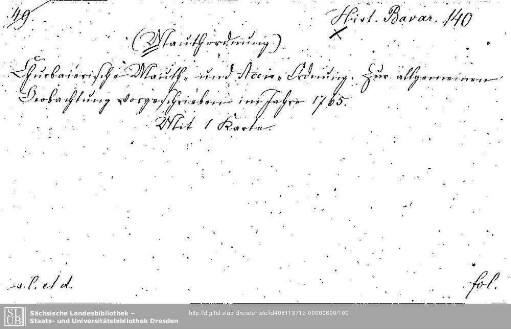 49
Hist. Bavar. 140
(Mauthordnung)
Churbaierische Mauth- und Accis-Ordnung. Zur allgemeinen
Beobachtung vorgeschrieben im Jahre 1765.
Mit 1 Karte.
s. l. et d.
fol.
Sächsische Landesbibliothek –
Staats- und Universitätsbibliothek Dresden